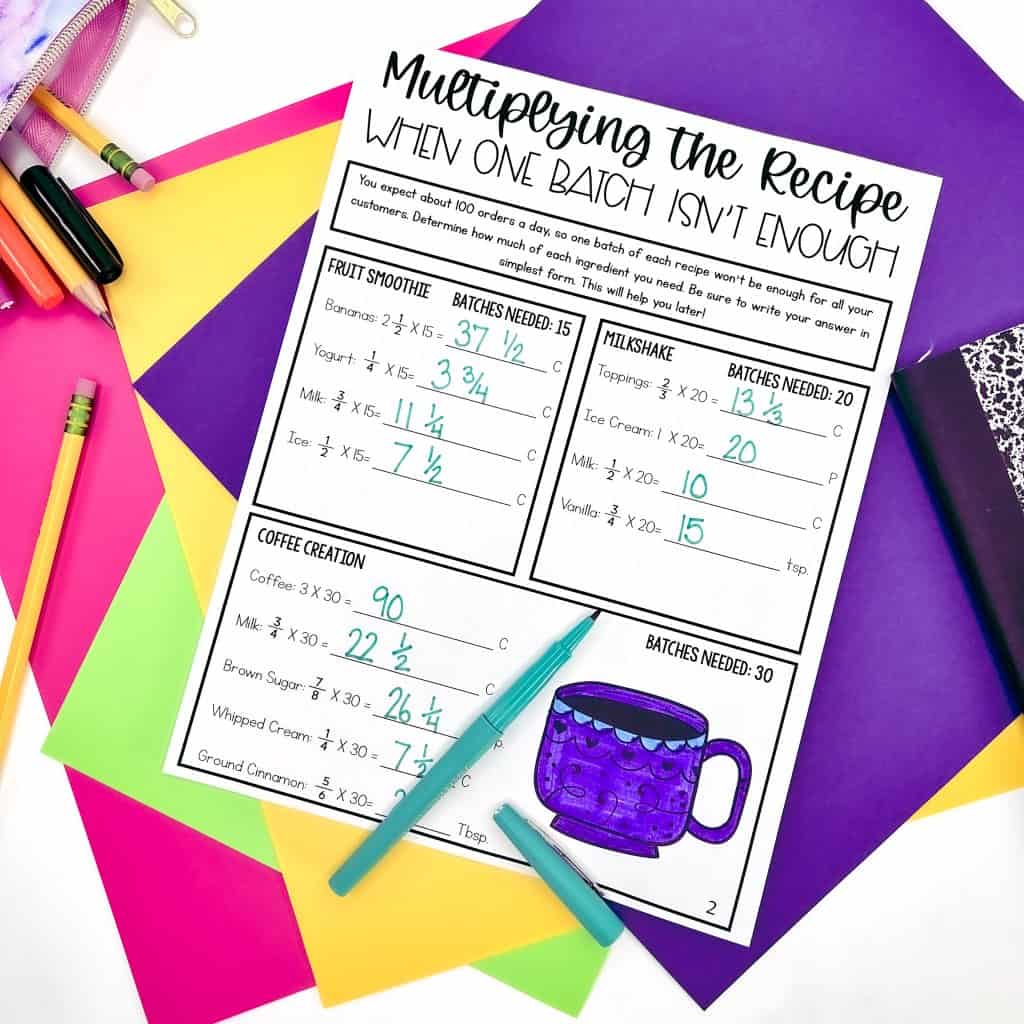 Multiplying the Recipe
WHEN ONE BATCH ISN'T ENOUGH
You expect about 100 orders a day, so one batch of each recipe won't be enough for all your
customers. Determine how much of each ingredient you need. Be sure to write your answer in
simplest form. This will help you later!
FRUIT SMOOTHIE BATCHES NEEDED: 15
Bananas: 2 1/2 X 15 = 37 1/2 C
Yogurt: 1/4 X 15= 3 3/4 C
Milk: 3/4 X 15= 11 1/4 C
Ice: 1/2 X 15= 7 1/2 C
MILKSHAKE
BATCHES NEEDED: 20
Toppings: 2/3 X 20 = 13 1/3 C
Ice Cream: 1 X 20= 20 P
Milk: 1/2 X 20= 10 C
Vanilla: 3/4 X 20= 15 tsp.
COFFEE CREATION
BATCHES NEEDED: 30
Coffee: 3 X 30 = 90 C
Milk: 3/4 X 30 = 22 1/2 C
Brown Sugar: 7/8 X 30 = 26 1/4
Whipped Cream: 1/4 X 30 = 7 1/2 C
Ground Cinnamon: 5/6 X 30= Tbsp.
2